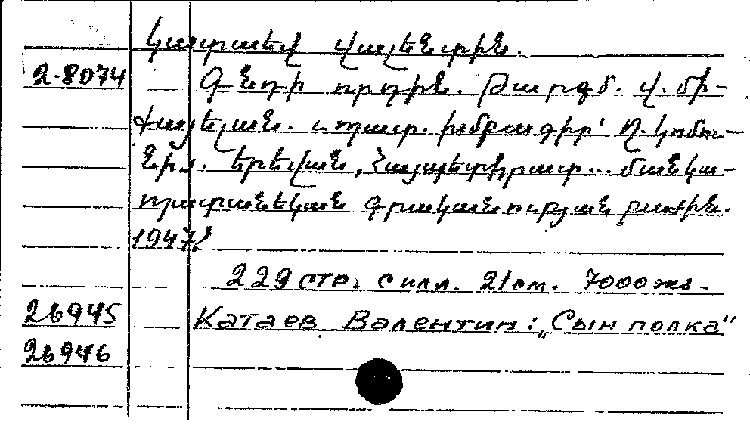 Կատաեվ Վալենտին.
2-8074 Գնդի որդին. Թարգմ. Վ. Մի-
քայելյան. Պատ. խմբագիր՝ Ղ.
Երևան, Հայպետհրատ... մանկա-
պատանեկան գրականության բաժին.
1947
229 стр. с илл. 21 см. 7000 экз.
26945 Катаев Валентин: „Сын полка"
26946